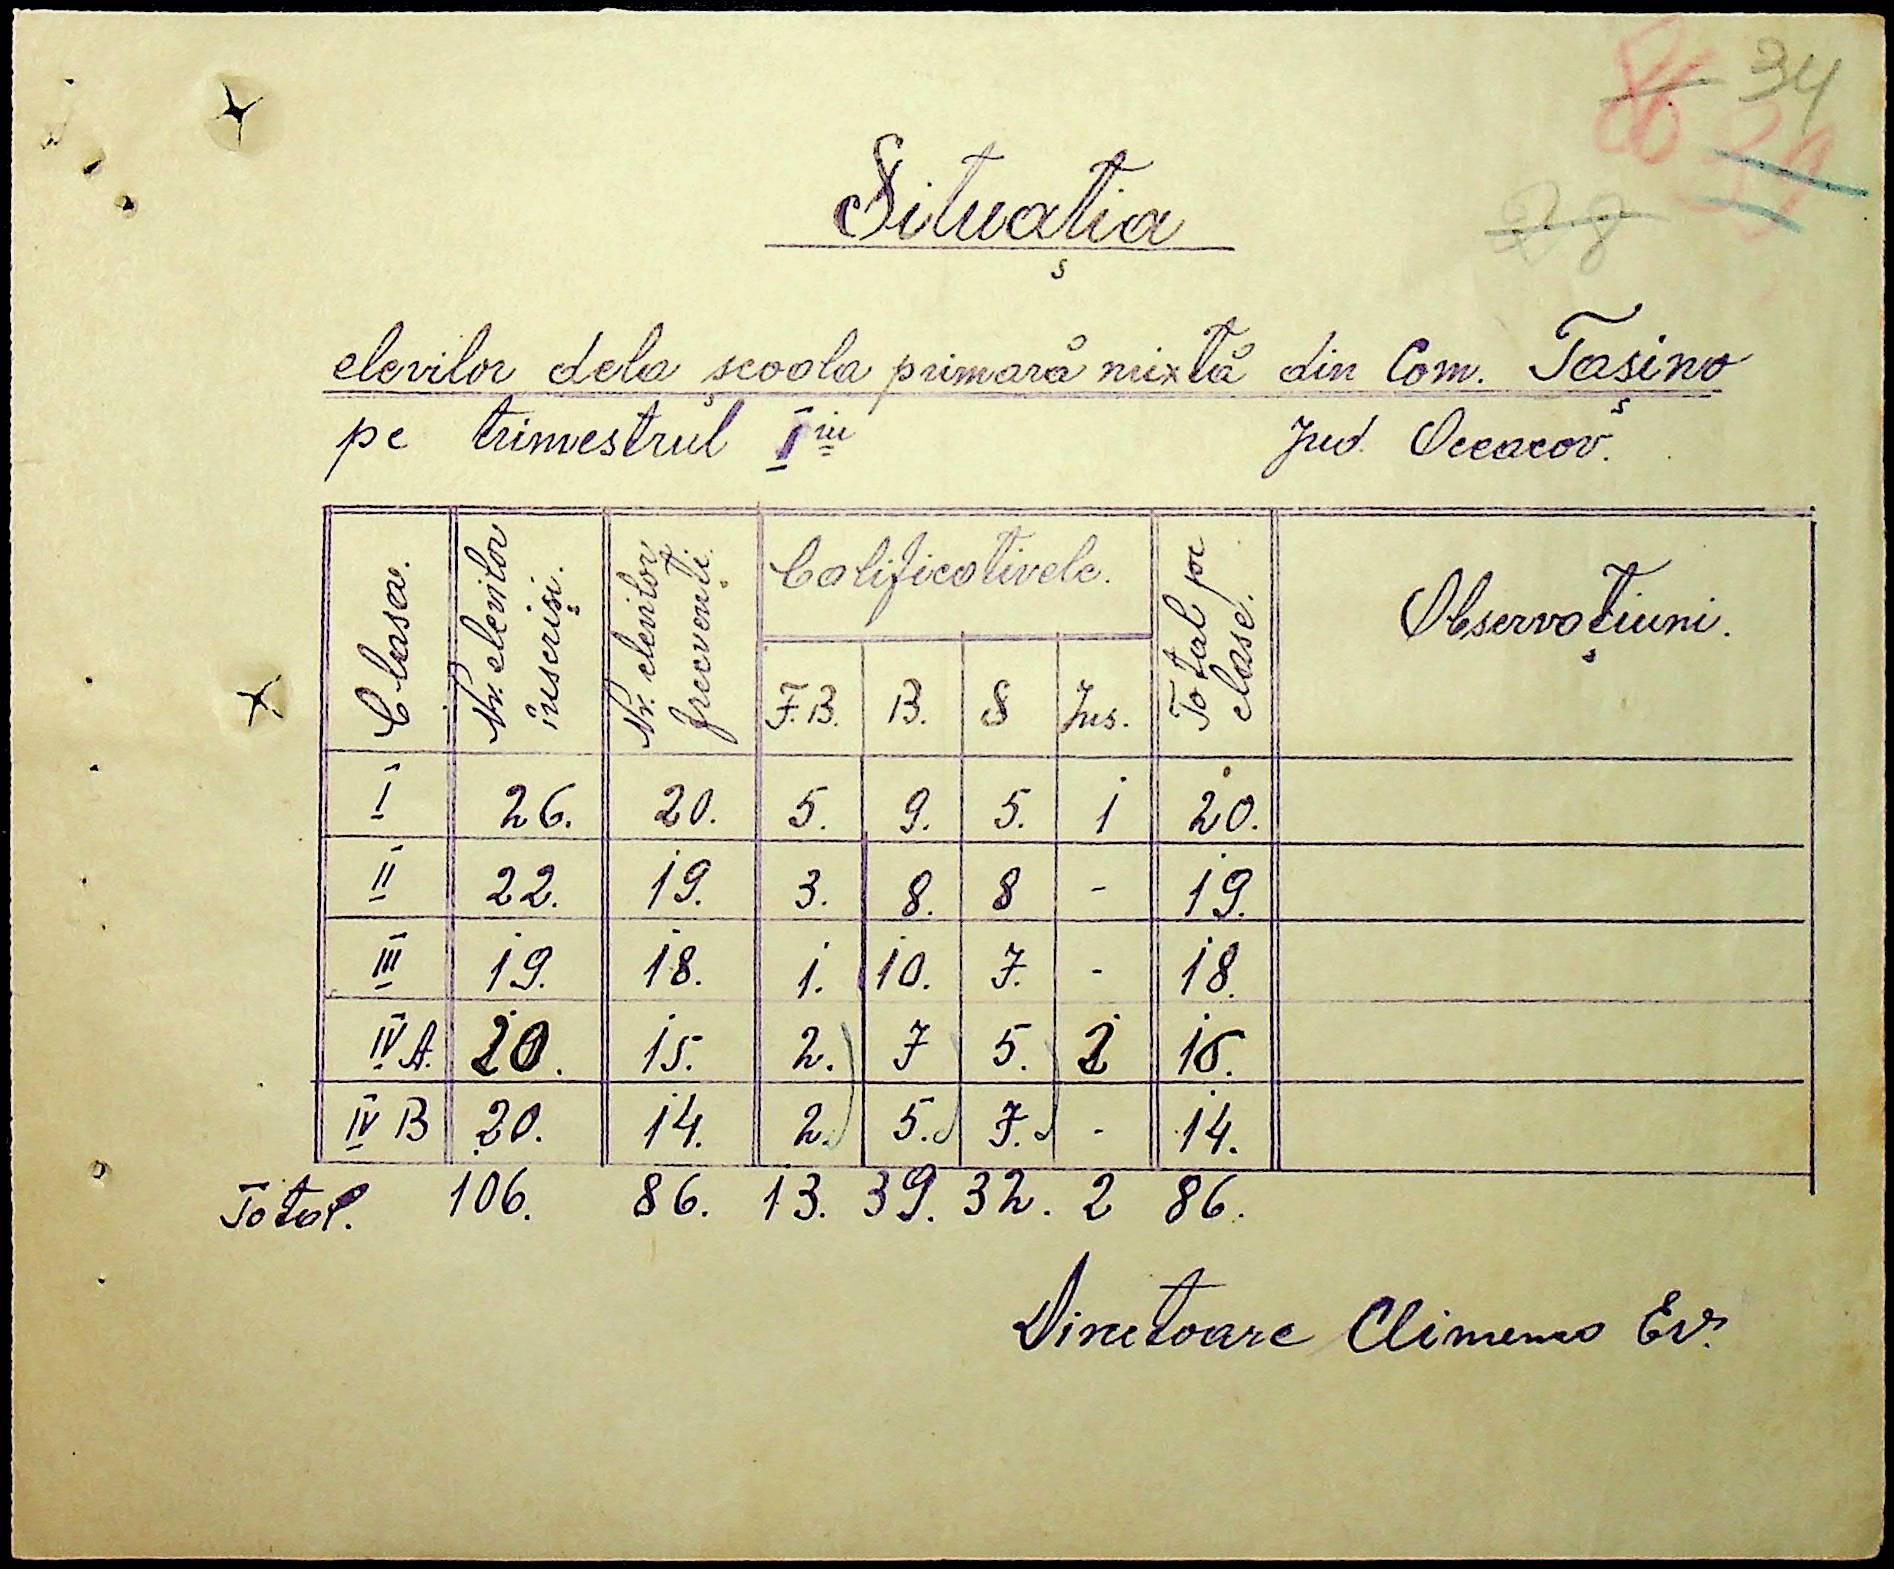 34
28
Situația
elevilor dela școala primară mixtă din Com. Tașino
pe trimestrul I iu Jud. Oceacov.
Clasa. Nr. elevilor înscriși. Nr. elevilor frecvenți. Calificativele. Total pe clase. Observațiuni.
F.B. B. S Ins.
I 26. 20. 5. 9. 5. 1 20.
II 22. 19. 3. 8. 8 - 19.
III 19. 18. 1. 10. 7. - 18.
IV A. 15. 2. 7 5. 15.
IV B 20. 14. 2. 5. 7. - 14.
Total. 106. 86. 13. 39. 32. 2 86.
Directoare Climenco Ev.